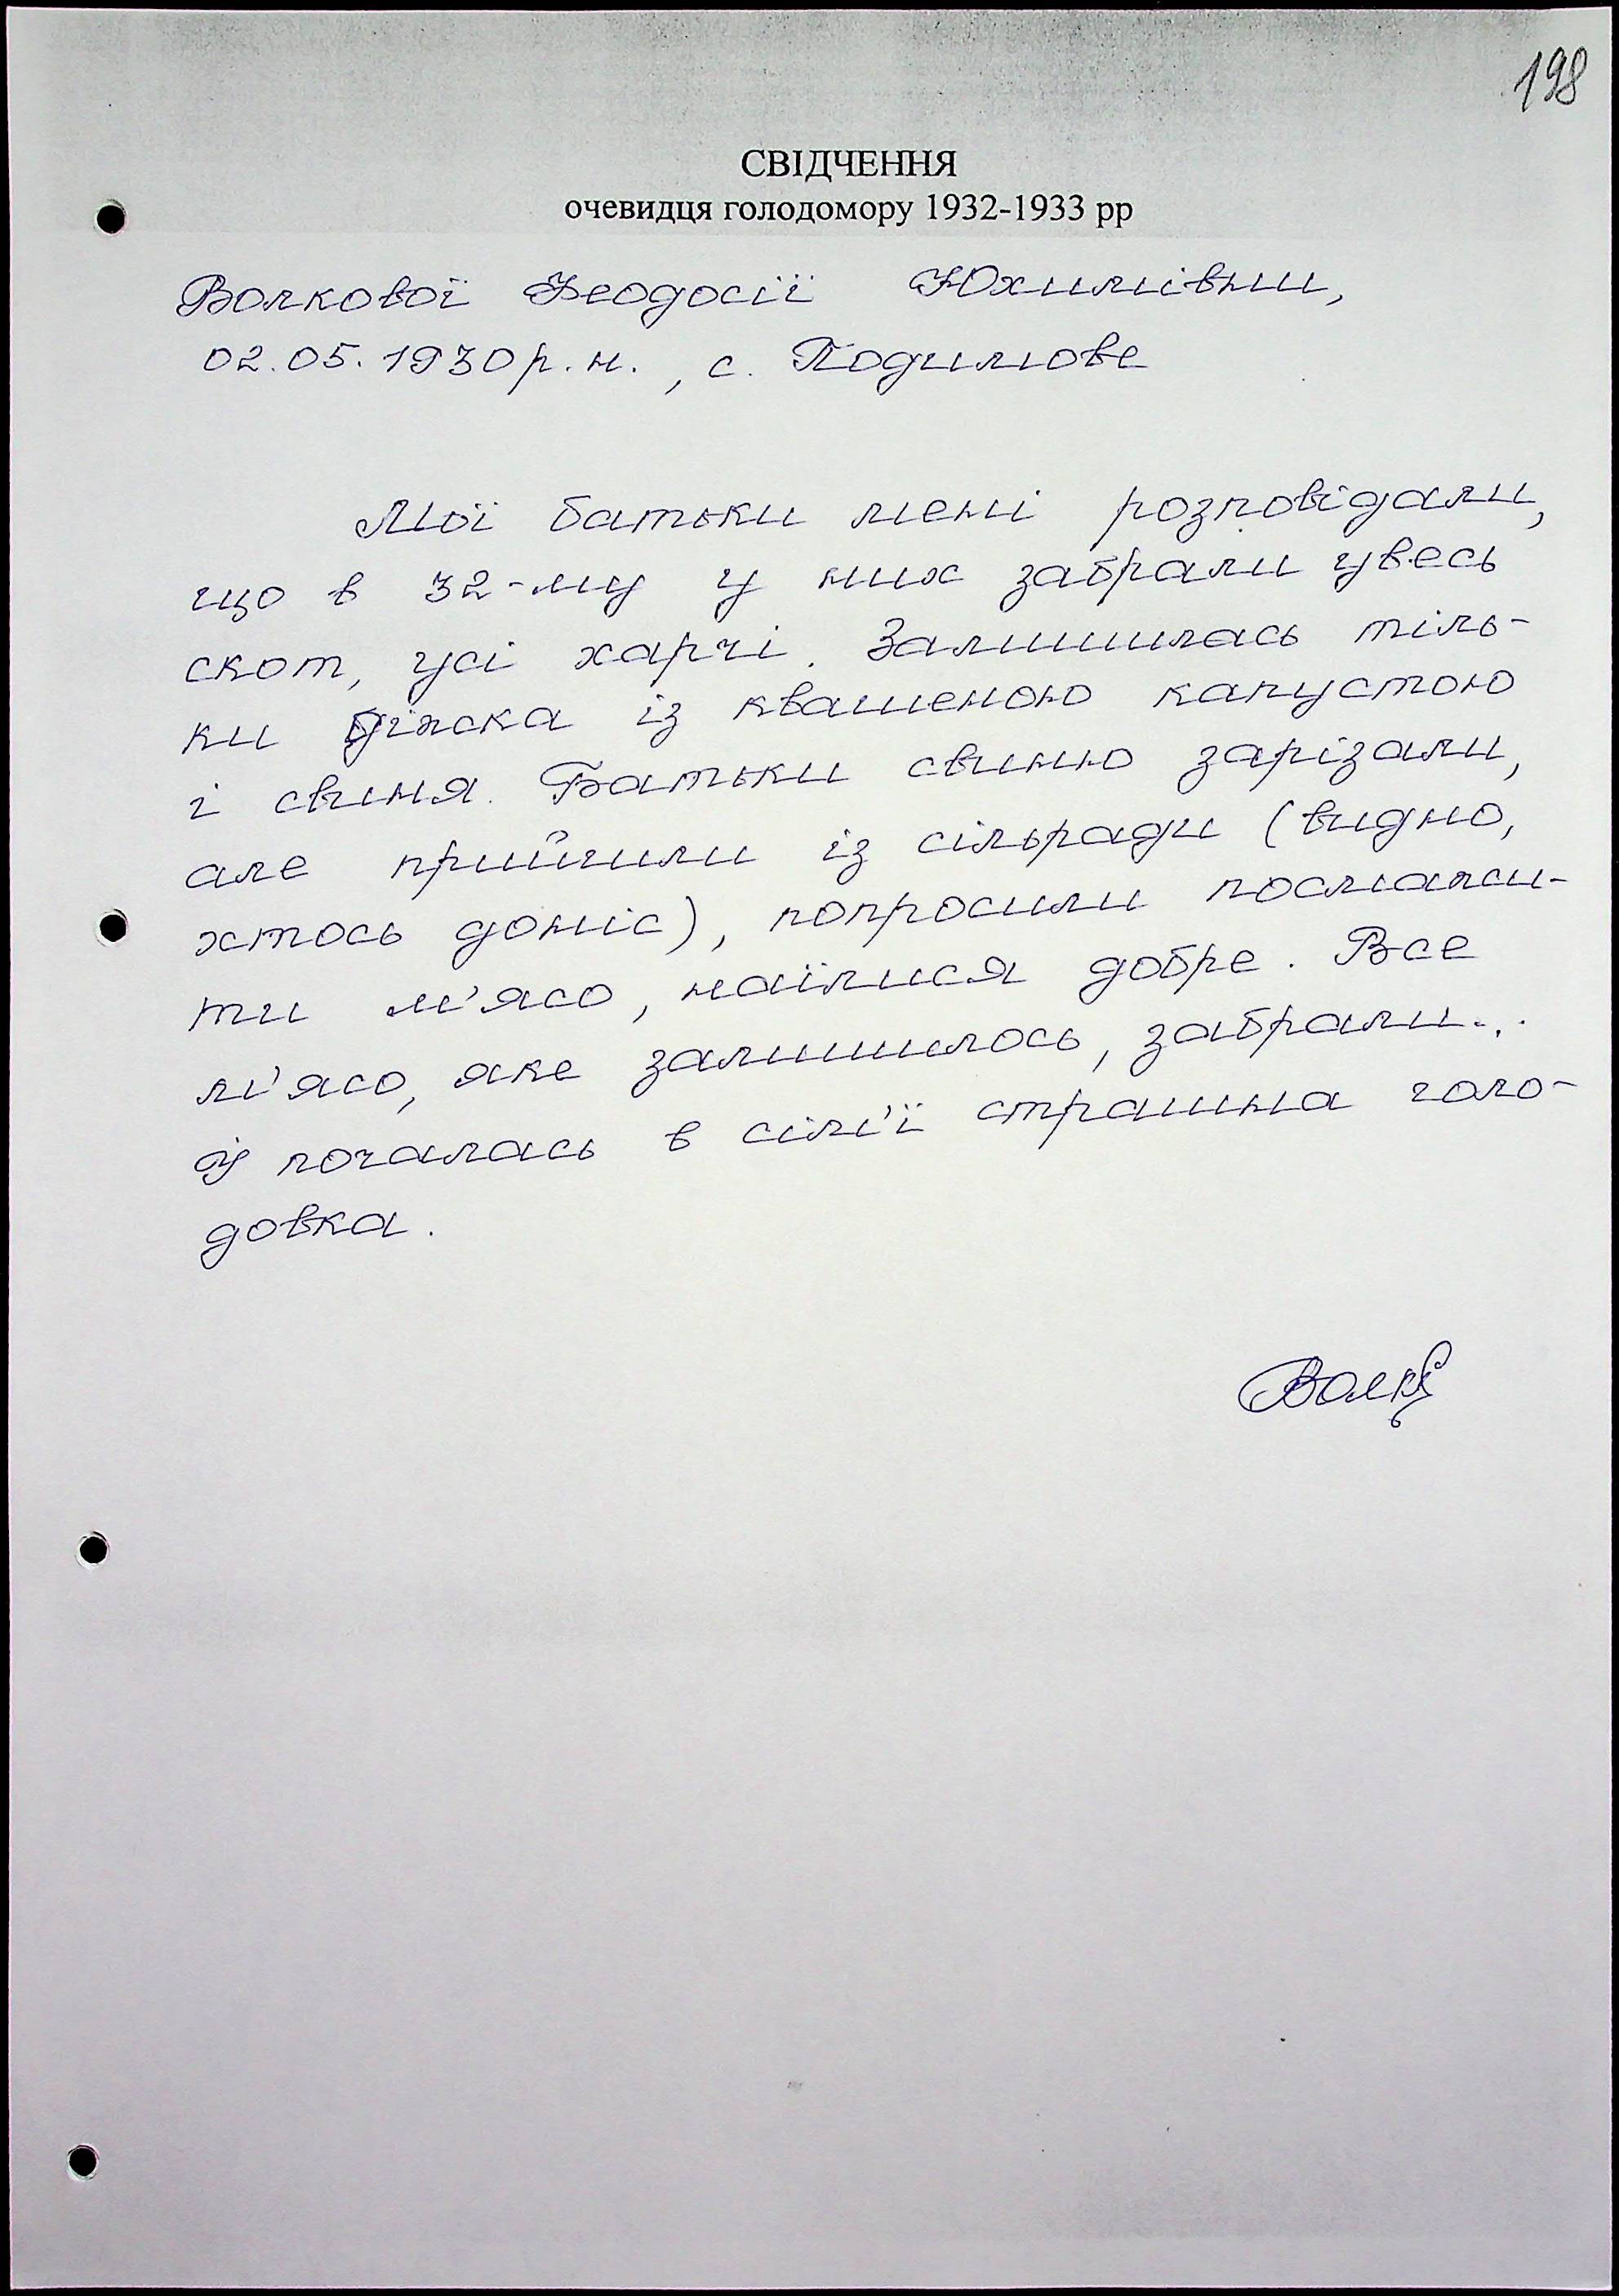 198
СВІДЧЕННЯ
очевидця голодомору 1932-1933 рр
Волкової Феодосії Юхимівни,
02.05.1930 р.н., с. Подимове
Мої батьки мені розповідали,
що в 32-му у них забрали увесь
скот, усі харчі. Залишилась тіль-
ки діжка із квашеною капустою
і свиня. Батьки свиню зарізали,
але прийшли із сільради (видно,
хтось доніс), попросили посмажи-
ти м'ясо, наїлися добре. Все
м'ясо, яке залишилось, забрали...
Й почалась в сім'ї страшна голо-
довка.